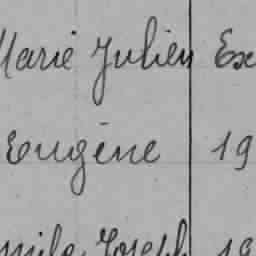 Marie Julien Ex
Eugène 19
mile Joseph 19